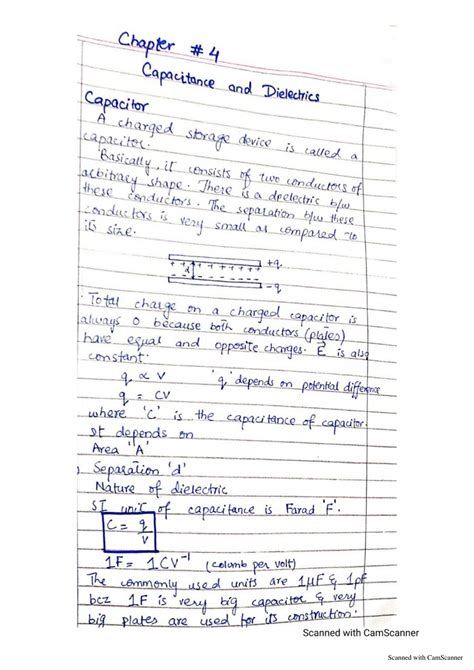 Chapter # 4
Capacitance and Dielectrics
Capacitor
A charged storage device is called a
capacitor.
Basically, it consists of two conductors of
arbitrary shape. There is a deelectric b/w
these conductors. The separation b/w these
conductors is very small as compared to
its size.
+q
+ + + + + + + + +
d
- - - - - - - - -
-q
Total charge on a charged capacitor is
always 0 because both conductors (plates)
have equal and opposite charges. E⃗ is also
constant.
q ∝ V 'q' depends on potential difference
q = CV
where 'C' is the capacitance of capacitor.
It depends on
Area 'A'
Separation 'd'
Nature of dielectric
SI unit of capacitance is Farad 'F'.
C = q/V
1F = 1CV⁻¹ (columb per volt)
The commonly used units are 1μF & 1pF
bcz 1F is very big capacitor & very
big plates are used for its construction.
Scanned with CamScanner
Scanned with CamScanner